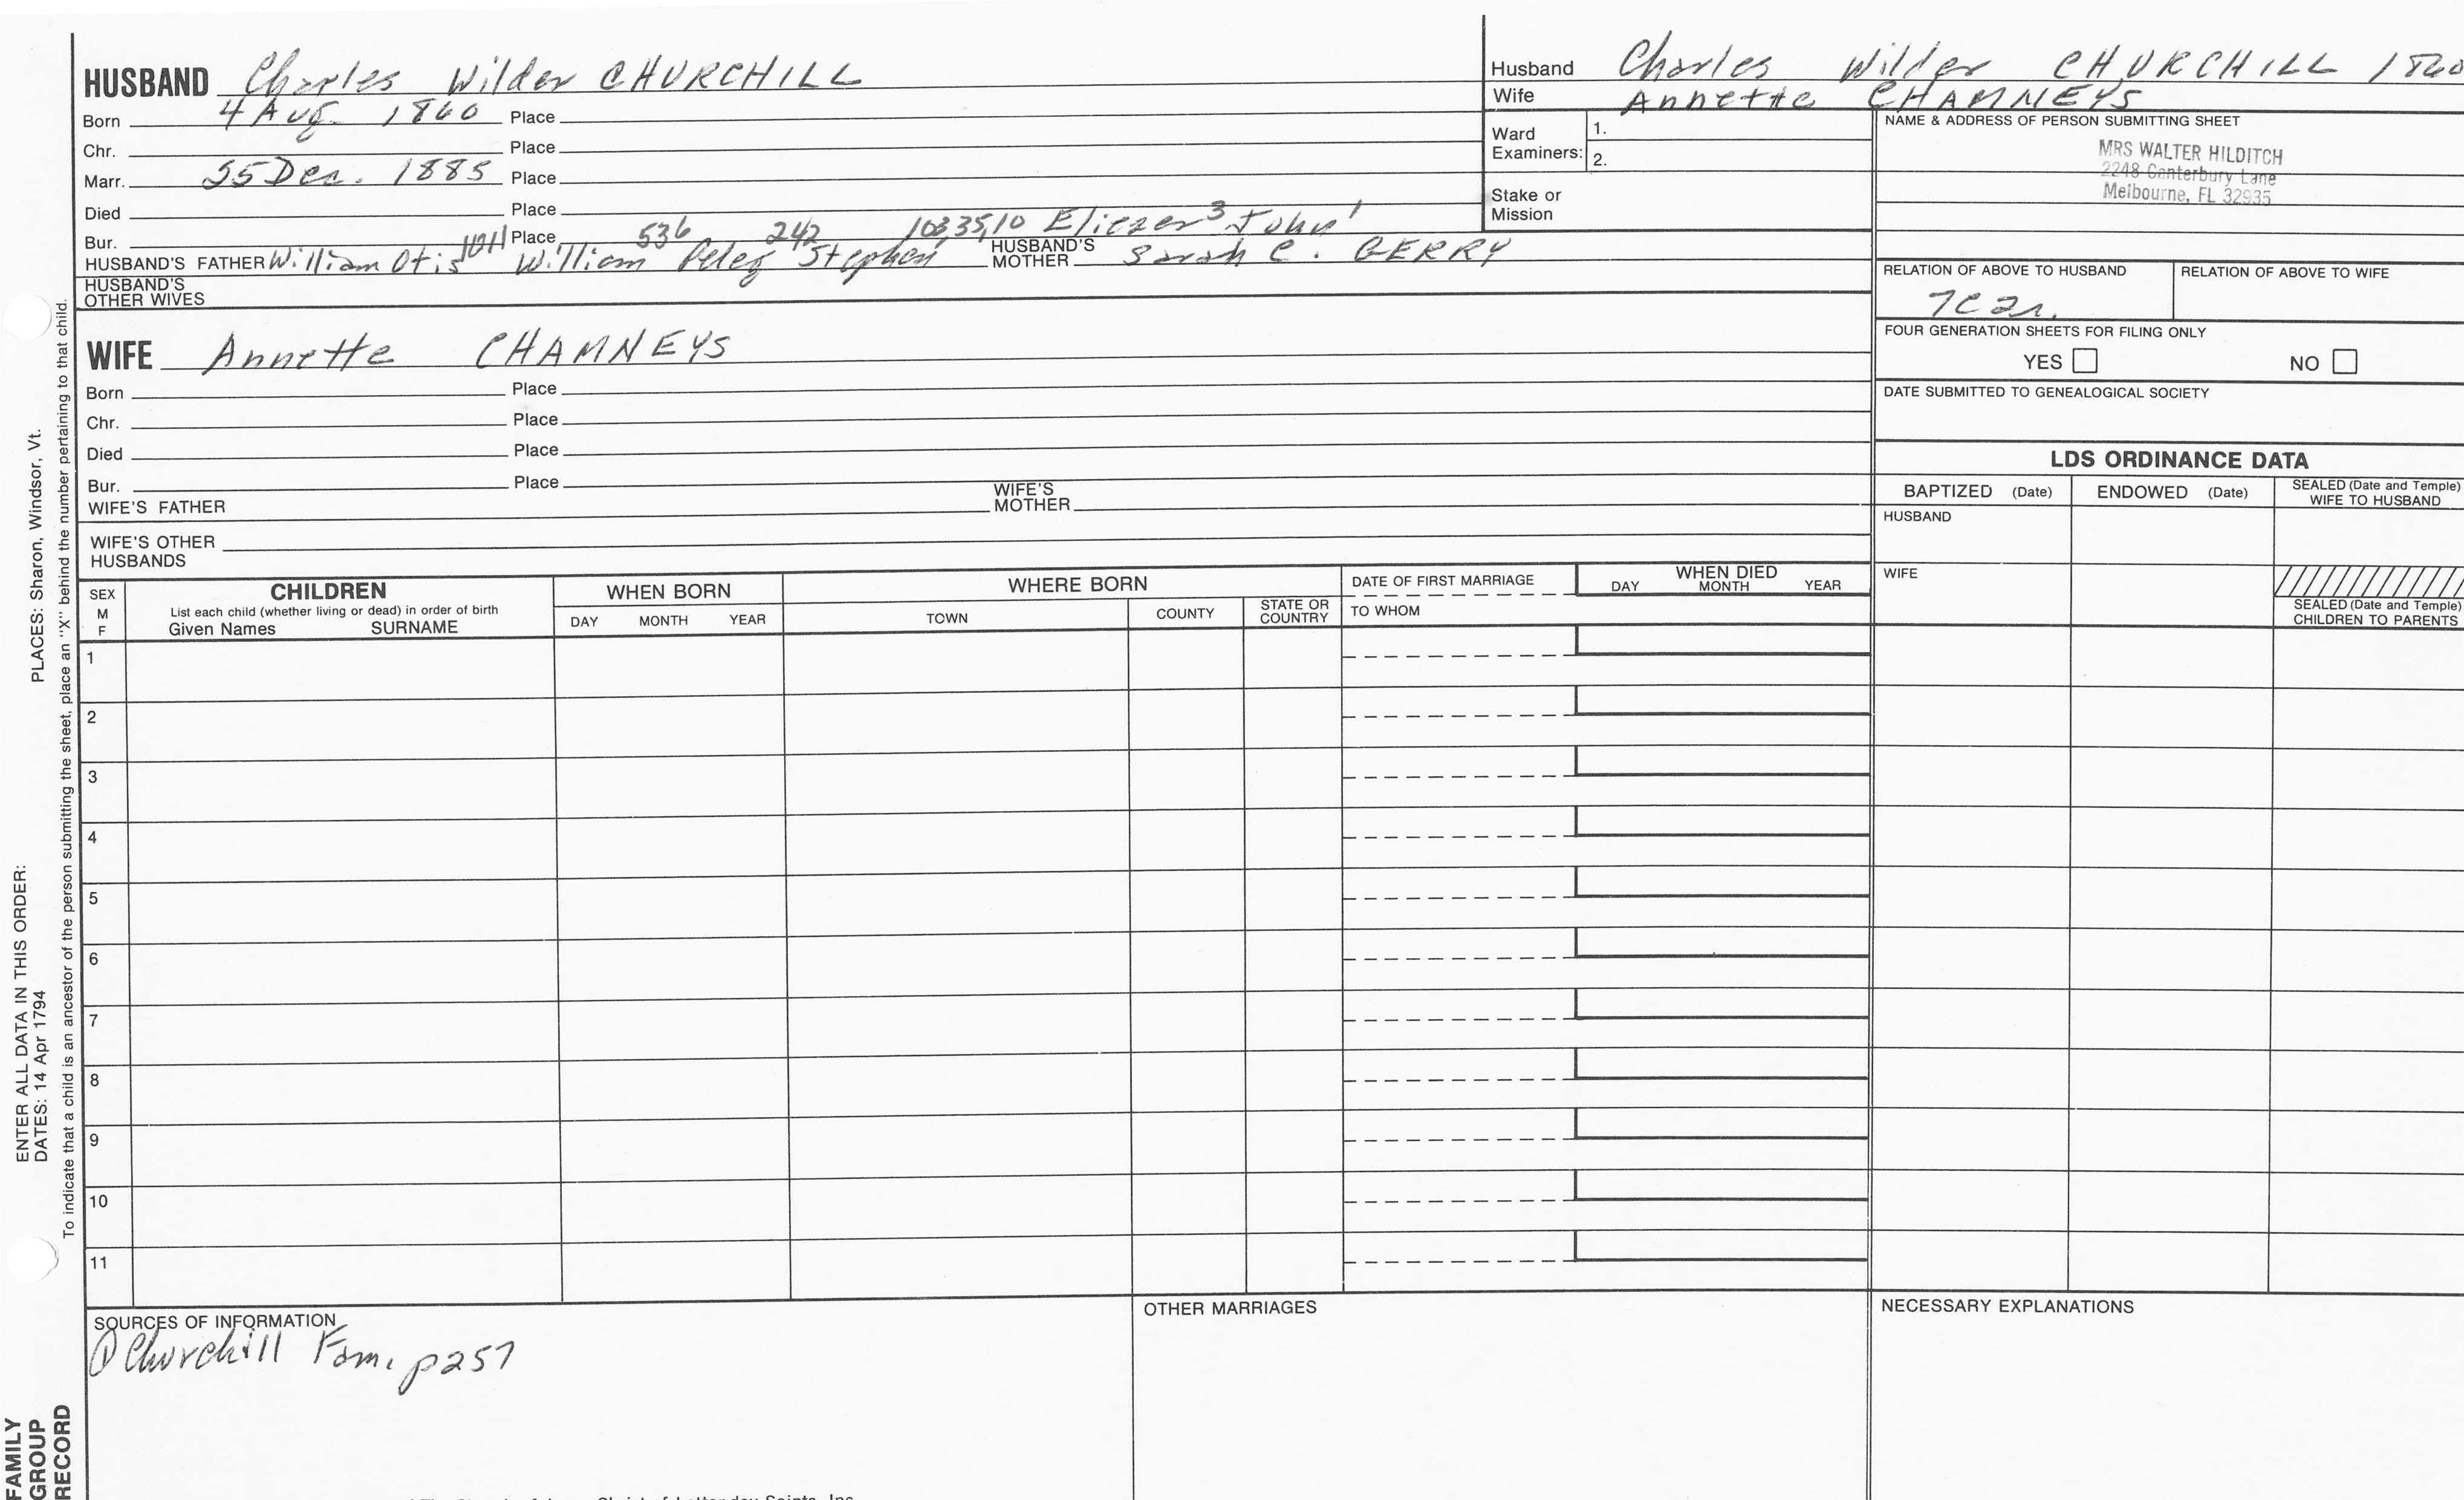 HUSBAND Charles Wilder CHURCHILL
Born 4 Aug 1860 Place
Chr. Place
Marr. 25 Dec. 1885 Place
Died Place
Bur. Place 536 242 103,35,10 Eliezer 3 John 1
HUSBAND'S FATHER William Otis 1011 William Peleg Stephen HUSBAND'S MOTHER Sarah C. GERRY
HUSBAND'S OTHER WIVES
WIFE Annette CHAMNEYS
Born Place
Chr. Place
Died Place
Bur. Place
WIFE'S FATHER WIFE'S MOTHER
WIFE'S OTHER HUSBANDS
Husband Charles Wilder CHURCHILL 1860
Wife Annette CHAMNEYS
Ward Examiners: 1. 2.
Stake or Mission
NAME & ADDRESS OF PERSON SUBMITTING SHEET
MRS WALTER HILDITCH
2248 Canterbury Lane
Melbourne, FL 32935
RELATION OF ABOVE TO HUSBAND RELATION OF ABOVE TO WIFE
7C2r.
FOUR GENERATION SHEETS FOR FILING ONLY
YES NO
DATE SUBMITTED TO GENEALOGICAL SOCIETY
LDS ORDINANCE DATA
BAPTIZED (Date) ENDOWED (Date) SEALED (Date and Temple) WIFE TO HUSBAND
HUSBAND
WIFE
SEALED (Date and Temple) CHILDREN TO PARENTS
SEX M F
CHILDREN
List each child (whether living or dead) in order of birth
Given Names SURNAME
WHEN BORN
DAY MONTH YEAR
WHERE BORN
TOWN COUNTY STATE OR COUNTRY
DATE OF FIRST MARRIAGE
TO WHOM
WHEN DIED
DAY MONTH YEAR
1
2
3
4
5
6
7
8
9
10
11
SOURCES OF INFORMATION
① Churchill Fam, p257
OTHER MARRIAGES
NECESSARY EXPLANATIONS
ENTER ALL DATA IN THIS ORDER:
DATES: 14 Apr 1794 PLACES: Sharon, Windsor, Vt.
To indicate that a child is an ancestor of the person submitting the sheet, place an "X" behind the number pertaining to that child.
FAMILY
GROUP
RECORD